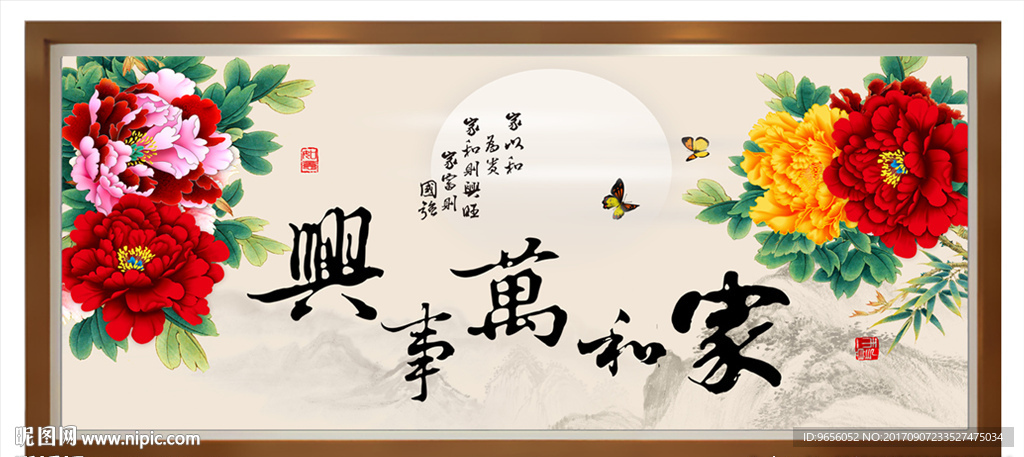 家和萬事興
家以和
為贵
家和則興旺
家富則
國強
昵图网 www.nipic.com
ID:9656052 NO:20170907233527475034